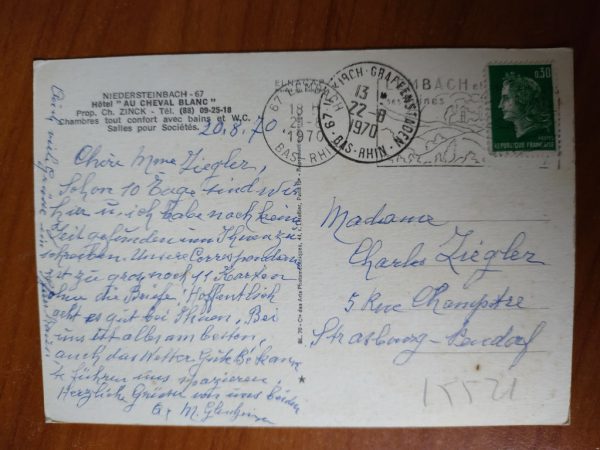 NIEDERSTEINBACH - 67
Hôtel "AU CHEVAL BLANC"
Prop. Ch. ZINCK - Tél. (88) 09-25-18
Chambres tout confort avec bains et W.C.
Salles pour Sociétés.
20.8.70
Chère Mme Ziegler,
Schon 10 Tage sind wir
hier u. ich habe noch keine
Zeit gefunden um Ihnen zu
schreiben. Unsere Correspondenz
ist zu gross noch 41 Karten
ohne die Briefe, Hoffentlich
geht es gut bei Ihnen, Bei
uns ist alles am besten,
auch das Wetter. Gute Bekann-
te führen uns spazieren.
Herzliche Grüsse von uns beiden
M.
67 ILLKIRCH-GRAFFENSTADEN
13 H
22-8
1970
BAS-RHIN
67 LEMBACH
18 H
1970
BAS-RHIN
0,30
POSTES
REPUBLIQUE FRANÇAISE
Madame
Charles Ziegler
5 Rue Champêtre
Strasbourg-Neudorf
15521